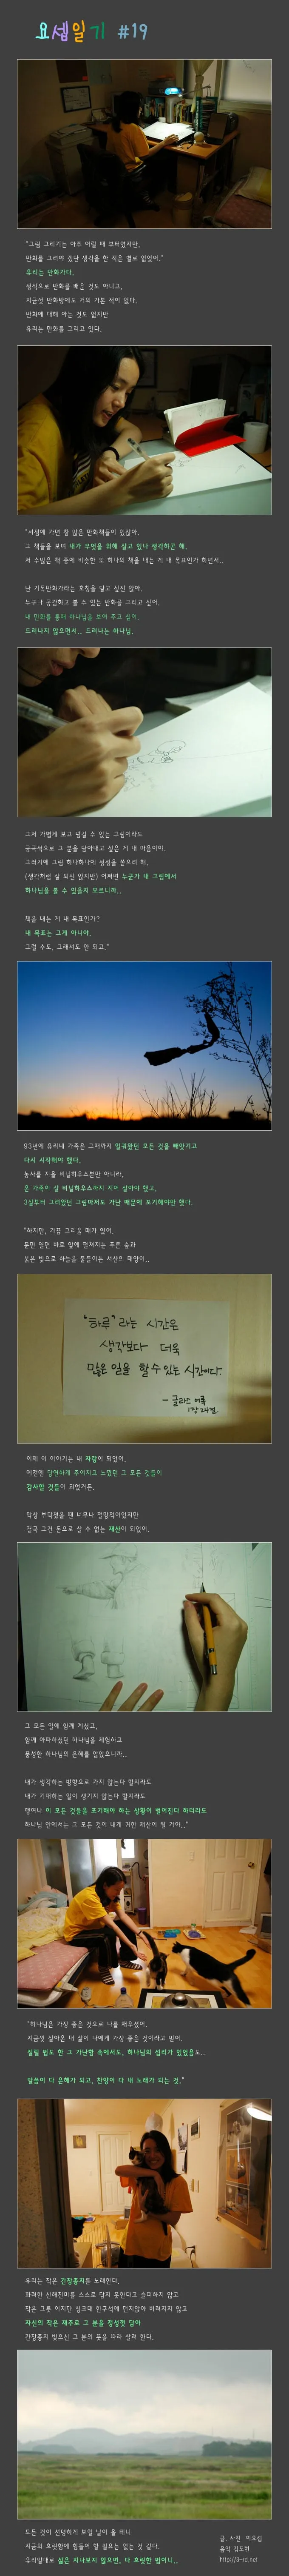 요셉일기 #19
"그림 그리기는 아주 어릴 때 부터였지만,
만화를 그려야 겠단 생각을 한 적은 별로 없었어."
유리는 만화가다.
정식으로 만화를 배운 것도 아니고,
지금껏 만화방에도 거의 가본 적이 없다.
만화에 대해 아는 것도 없지만
유리는 만화를 그리고 있다.
"서점에 가면 참 많은 만화책들이 있잖아.
그 책들을 보며 내가 무엇을 위해 살고 있나 생각하곤 해.
저 수많은 책 중에 비슷한 또 하나의 책을 내는 게 내 목표인가 하면서..
난 기독만화가라는 호칭을 달고 싶진 않아.
누구나 공감하고 볼 수 있는 만화를 그리고 싶어.
내 만화를 통해 하나님을 보여 주고 싶어.
드러나지 않으면서.. 드러나는 하나님.
그저 가볍게 보고 넘길 수 있는 그림이라도
궁극적으로 그 분을 담아내고 싶은 게 내 마음이야.
그러기에 그림 하나하나에 정성을 쏟으려 해.
(생각처럼 잘 되진 않지만) 어쩌면 누군가 내 그림에서
하나님을 볼 수 있을지 모르니까..
책을 내는 게 내 목표인가?
내 목표는 그게 아니야.
그럴 수도, 그래서도 안 되고."
93년에 유리네 가족은 그때까지 일궈왔던 모든 것을 빼앗기고
다시 시작해야 했다.
농사를 지을 비닐하우스뿐만 아니라,
온 가족이 살 비닐하우스까지 지어 살아야 했고,
3살부터 그려왔던 그림마저도 가난 때문에 포기해야만 했다.
"하지만, 가끔 그리울 때가 있어.
문만 열면 바로 앞에 펼쳐지는 푸른 숲과
붉은 빛으로 하늘을 물들이는 서산의 태양이..
"하루" 라는 시간은
생각보다 더욱
많은 일을 할 수 있는 시간이다.
이제 이 이야기는 내 자랑이 되었어.
예전엔 당연하게 주어지고 느꼈던 그 모든 것들이
감사할 것들이 되었거든.
막상 부닥쳤을 땐 너무나 절망적이었지만
결국 그건 돈으로 살 수 없는 재산이 되었어.
그 모든 일에 함께 계셨고,
함께 아파하셨던 하나님을 체험하고
풍성한 하나님의 은혜를 알았으니까..
내가 생각하는 방향으로 가지 않는다 할지라도
내가 기대하는 일이 생기지 않는다 할지라도
행여나 이 모든 것들을 포기해야 하는 상황이 벌어진다 하더라도
하나님 안에서는 그 모든 것이 내게 귀한 재산이 될 거야.."
"하나님은 가장 좋은 것으로 나를 채우셨어.
지금껏 살아온 내 삶이 나에게 가장 좋은 것이라고 믿어.
질릴 법도 한 그 가난함 속에서도, 하나님의 섭리가 있었음도..
말씀이 다 은혜가 되고, 찬양이 다 내 노래가 되는 것."
유리는 작은 간장종지를 노래한다.
화려한 산해진미를 스스로 담지 못한다고 슬퍼하지 않고
작은 그릇 이지만 싱크대 한구석에 먼지앉아 버려지지 않고
자신의 작은 재주로 그 분을 정성껏 담아
간장종지 빚으신 그 분의 뜻을 따라 살려 한다.
모든 것이 선명하게 보일 날이 올 테니
지금의 흐릿함에 힘들어 할 필요는 없는 것 같다.
유리말대로 삶은 지나보지 않으면, 다 흐릿한 법이니..
글, 사진 이요셉
음악 김도현
http://3-rd.net